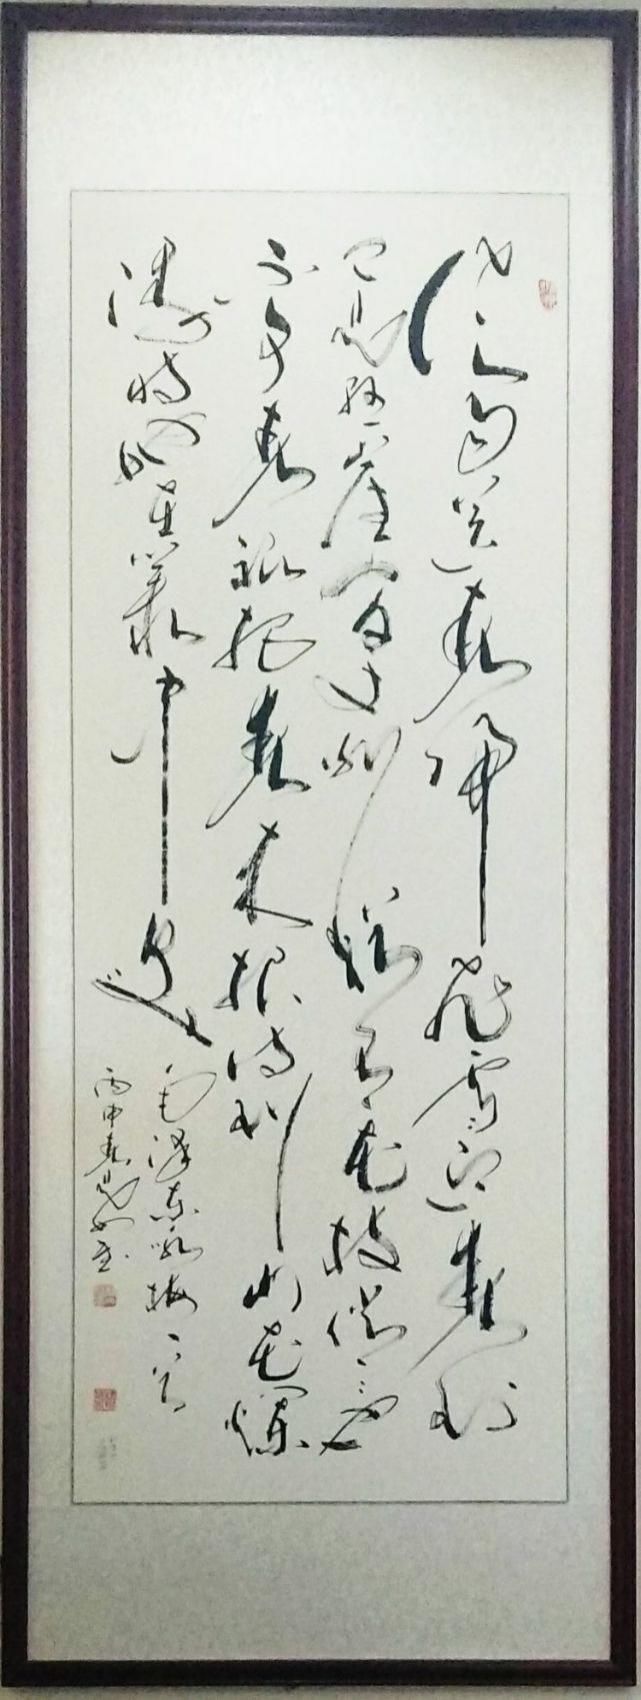 风雨送春归飞雪迎春到
已是悬崖百丈冰犹有花枝俏々也
不争春祇把春来报待到山花烂
漫时她在丛中笑
毛泽东咏梅一首
丙申春